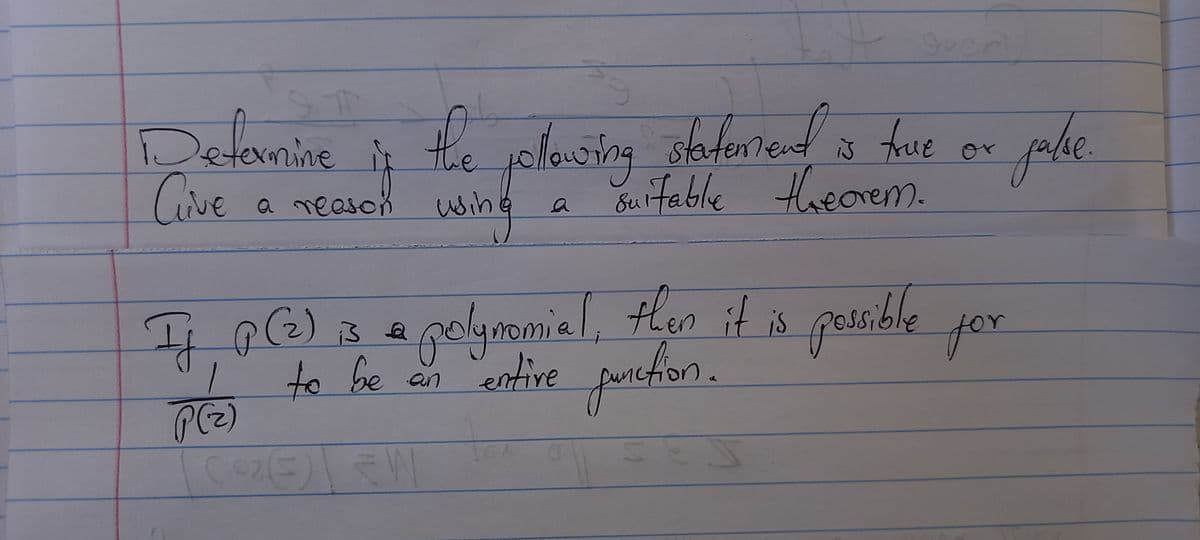 Determine if the following statement is true or false.
Give a reason using a suitable theorem.
If p(z) is a polynomial, then it is possible for
1/p(z) to be an entire function.